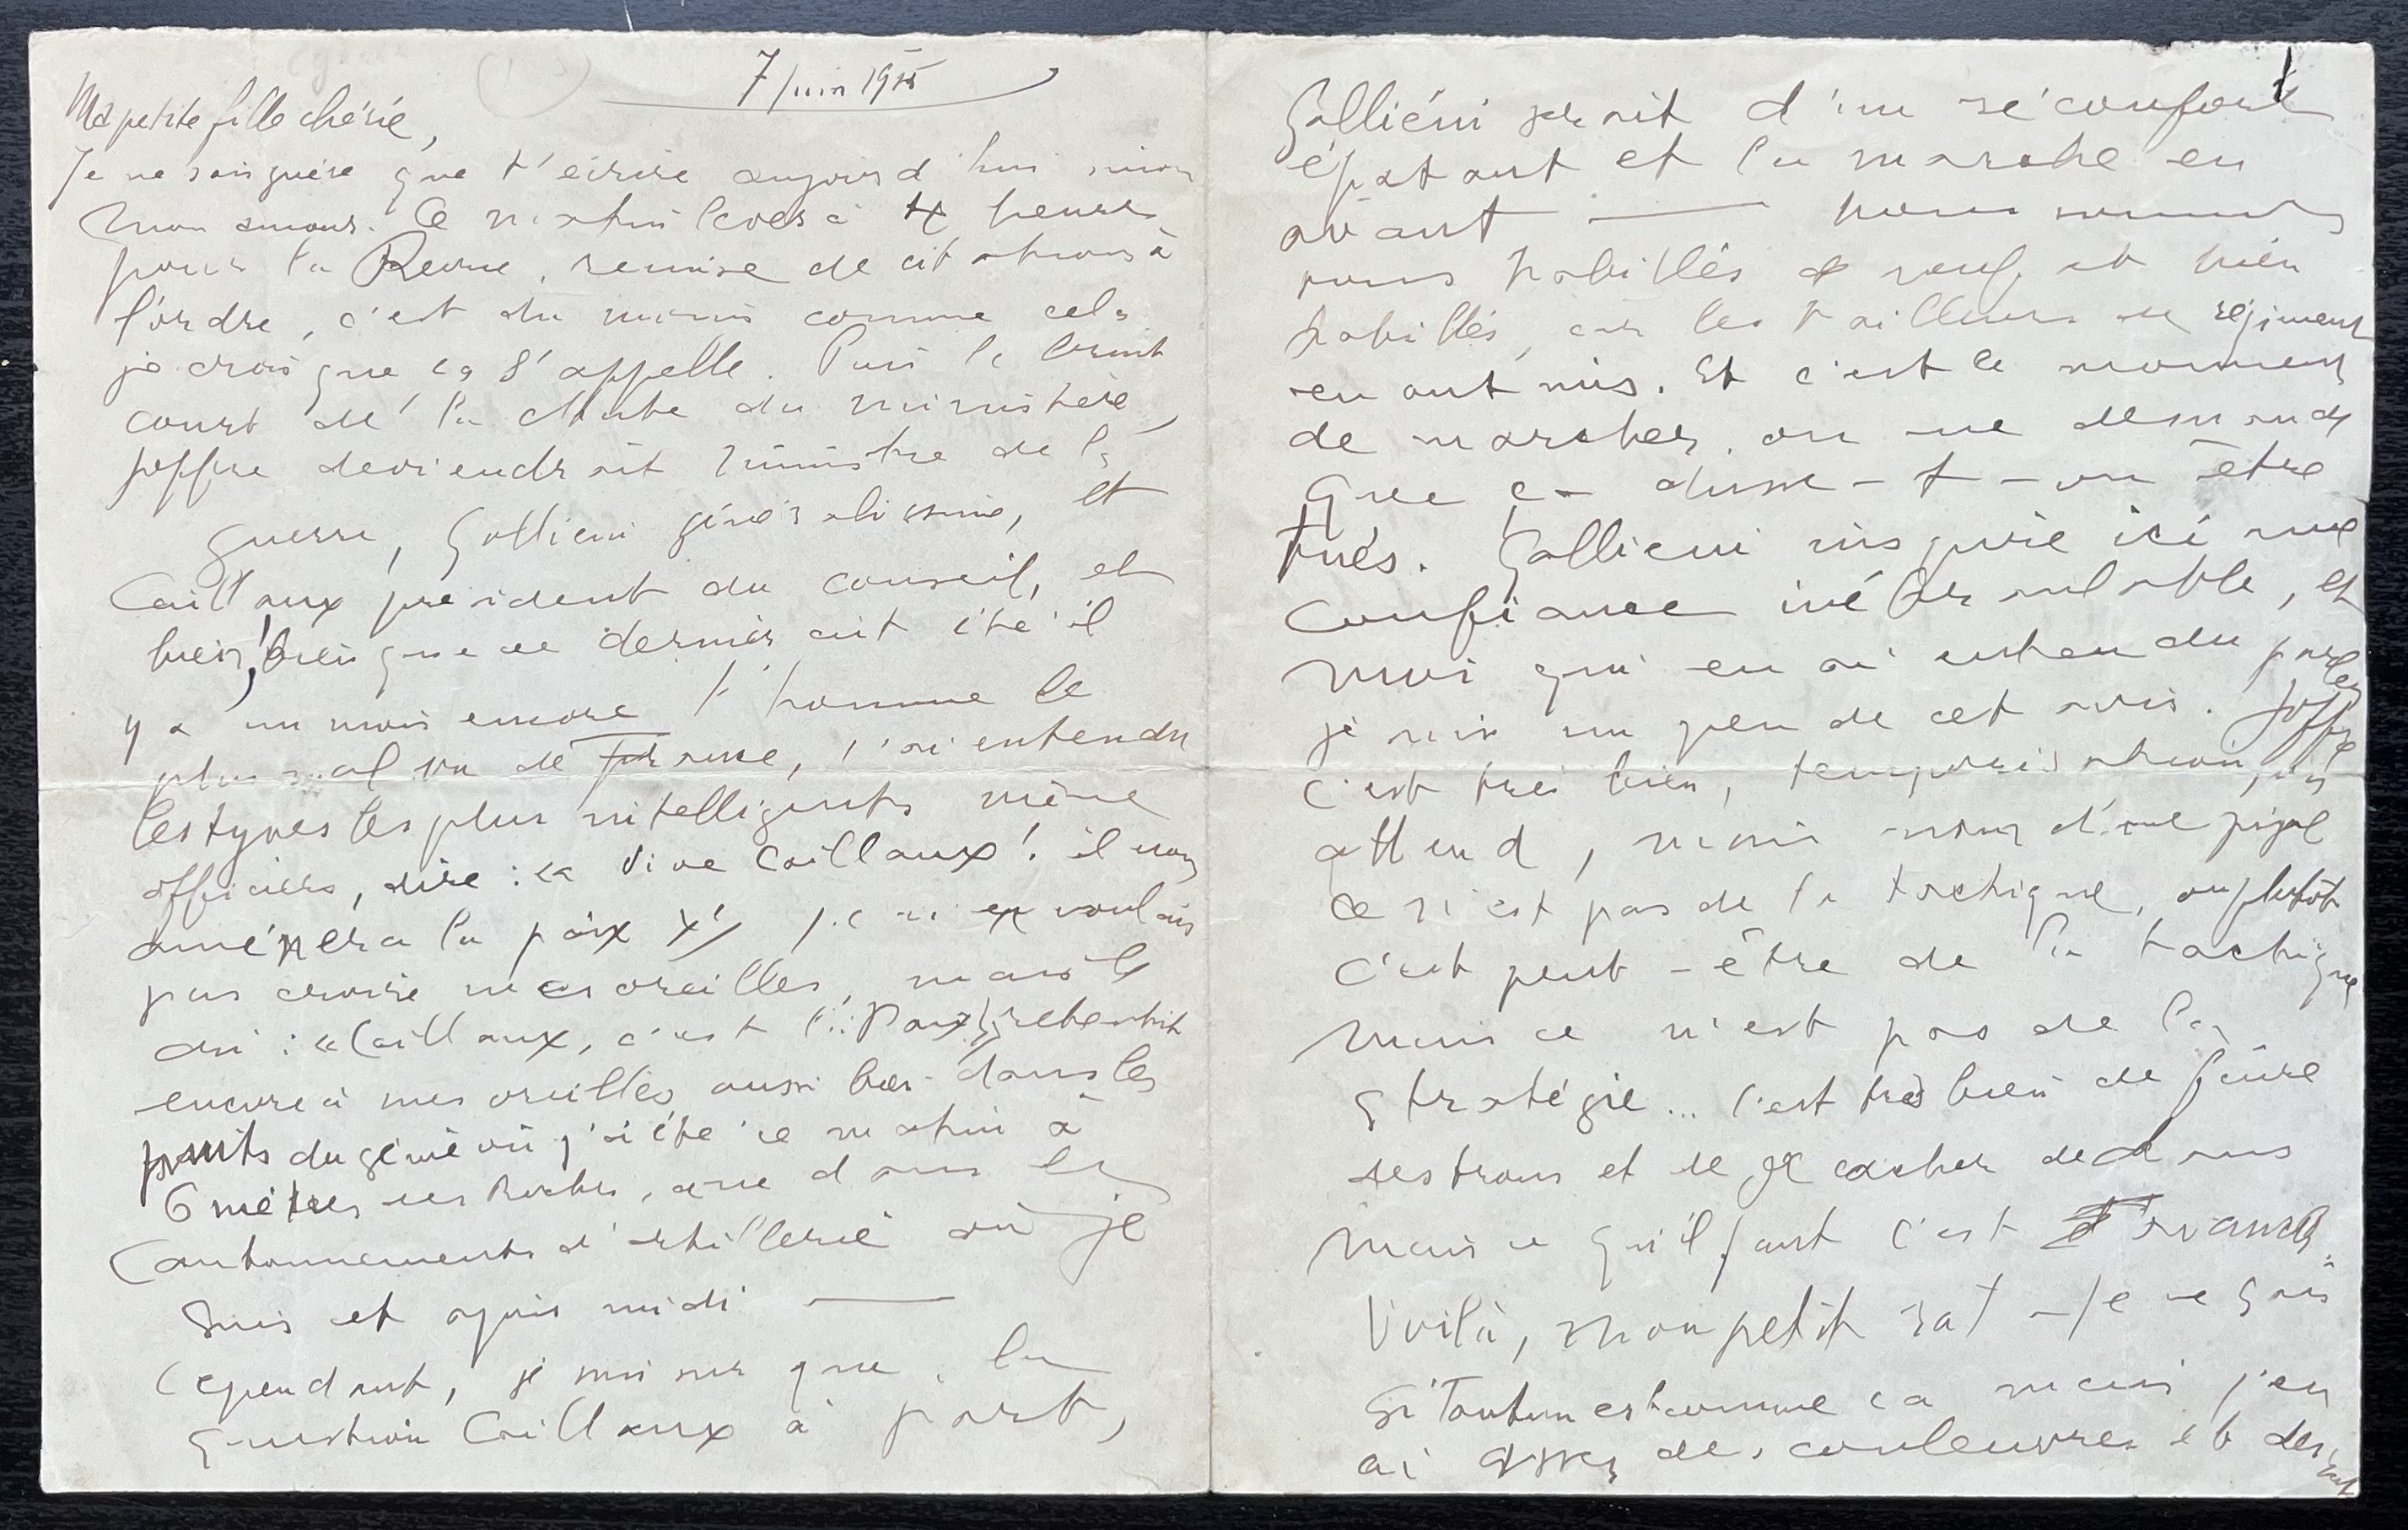 7 juin 1915
Ma petite fille chérie,
Je ne sais guère que t'écrire aujourd'hui sinon
mon amour. Ce matin levés à 4 heures
pour la Revue, remise de citations à
l'ordre, c'est du moins comme cela
je crois que ça s'appelle. Puis le bruit
court de la chute du ministère,
Joffre deviendrait Ministre de la
guerre, Gallieni généralissime, et
Caillaux président du conseil, eh
bien, bien que ce dernier ait été il
y a un mois encore l'homme le
plus mal vu de France, j'ai entendu
les types les plus intelligents même
officiers, dire : « Vive Caillaux ! il nous
amènera la paix » je n'en voulais
pas croire mes oreilles, mais le
cri : « Caillaux, c'est la Paix » retentit
encore à mes oreilles aussi bien dans les
puits du génie où j'ai été ce matin à
6 mètres des Boches, que dans les
cantonnements d'artillerie où je
suis cet après midi —
Cependant, je suis sûr que, la
question Caillaux à part,
Galliéni serait d'un réconfort
épatant et la marche en
avant — nous sommes
tous habillés de neuf, et bien
habillés, car les tailleurs du régiment
en ont mis. Et c'est le moment
de marcher, on ne demande
que ça dusse-t-on être
tués. Gallieni inspire ici une
confiance inébranlable, et
moi qui en ai entendu parler
je suis un peu de cet avis. Joffre
c'est très bien, temporisation, puis
attend, mais nom d'une pipe
ce n'est pas de la tactique, ou plutôt
c'est peut-être de la tactique
mais ce n'est pas de la
stratégie... C'est très bien de faire
des trous et de se cacher dedans
mais ce qu'il faut c'est avancer.
Voilà, mon petit rat — Je ne sais
si Toutun est comme ça mais j'en
ai assez des couleuvres et des